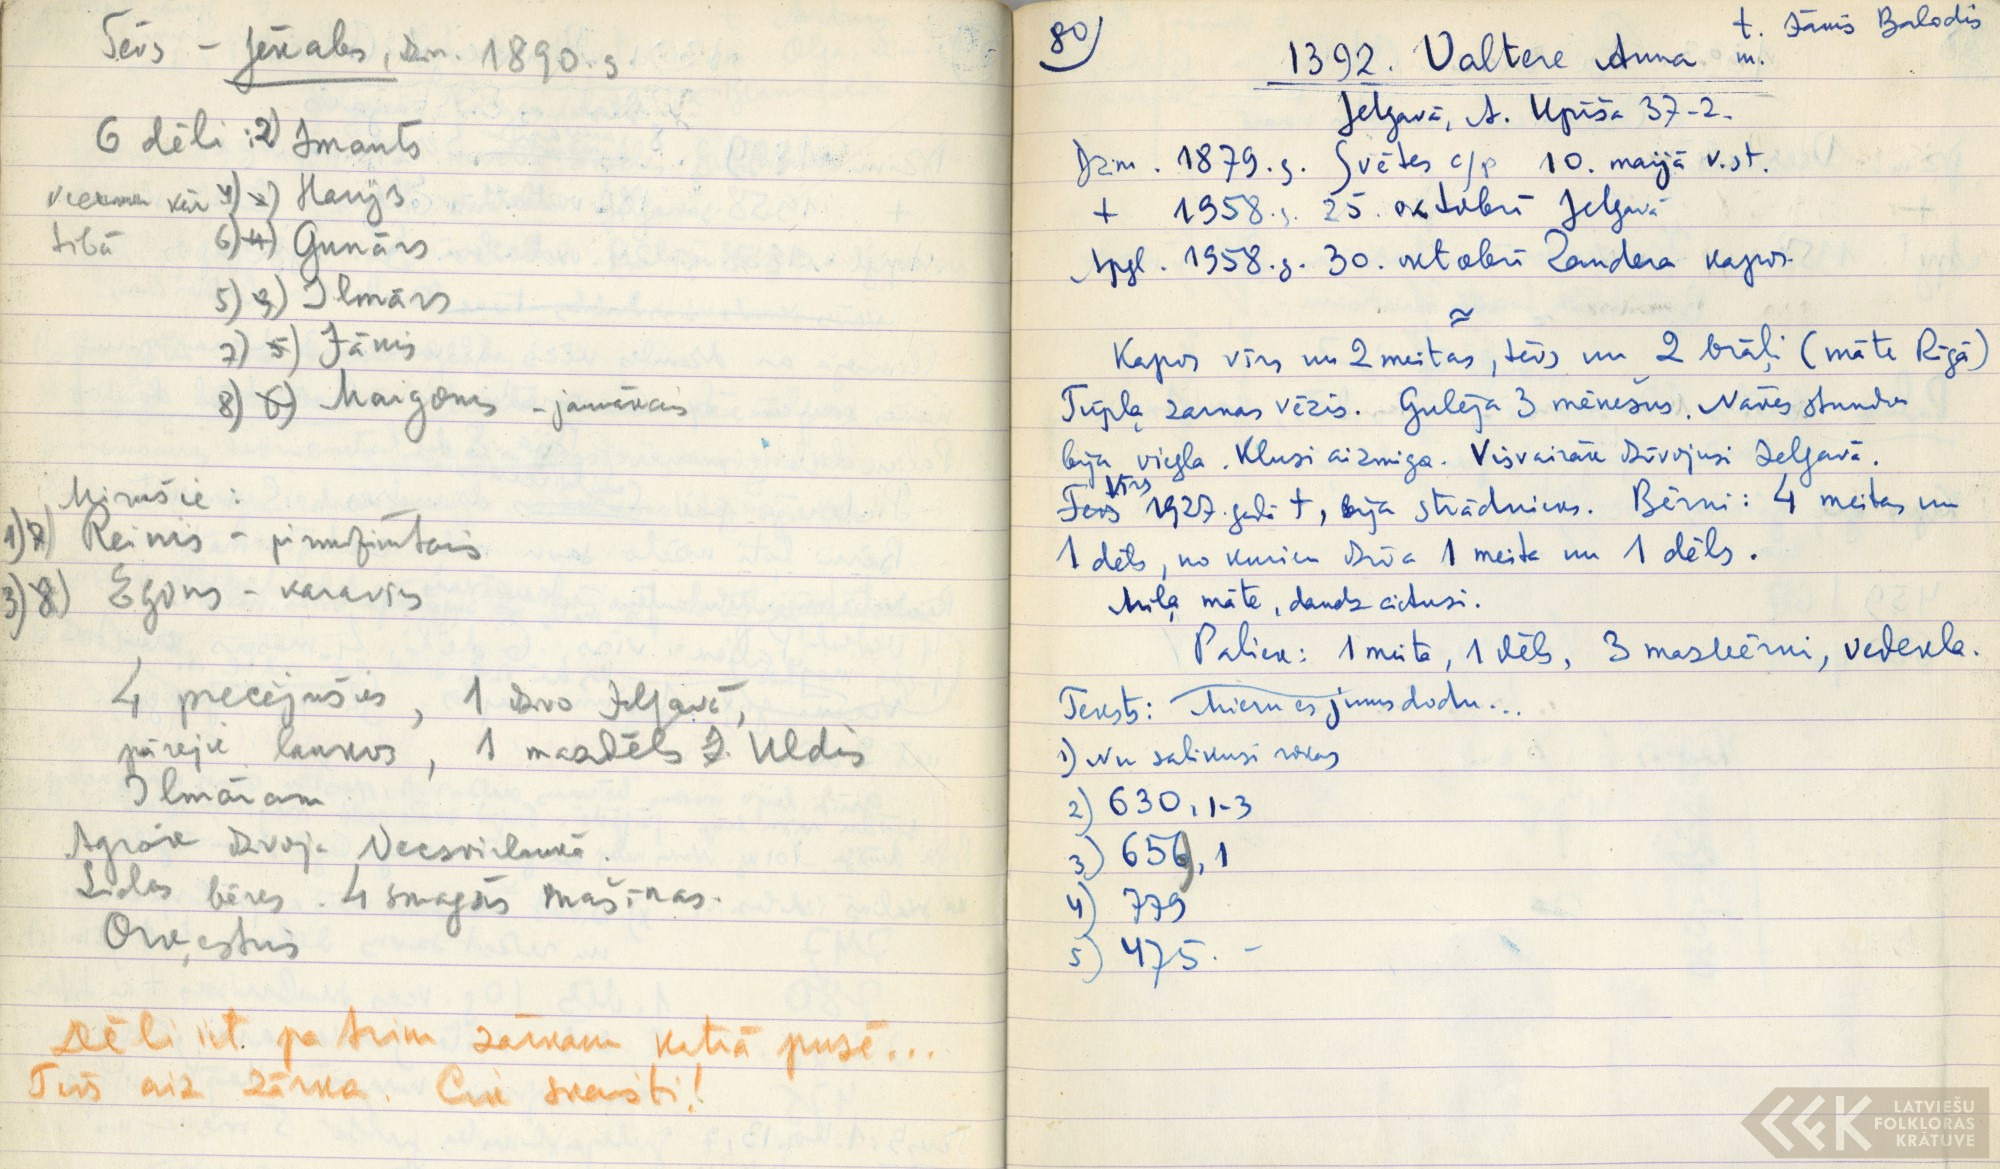 Tēvs – Jēkabs, Dzn. 1890. g
6 dēli : 2) Imants
vecuma kār 4) 2) Harijs
tībā 6) 4) Gunārs
5) 3) Ilmārs
7) 5) Jānis
8) 6) Maigonis – jaunākais
Mirušie :
1) 7) Reinis – pirmdzimtais
3) 8) Egons – karavīrs
4 precējušies, 1 dzīvo Jelgavā,
pārejie laukos, 1 mazdēls Uldis
Ilmāram
Agrāk dzīvoja Vecsvirlaukā.
Lielas bēres. 4 smagās mašīnas.
Orķestris
Dēli iet pa trim zārkam katrā pusē...
Tēvs aiz zārka. Cik skaisti!
80)
t. Jānis Balodis
m.
1392. Valtere Anna
Jelgavā, A. Upīša 37-2.
Dzim. 1879. g. Svētes c/p 10. maijā v. st.
+ 1958. g. 25. oktobrī Jelgavā
Apgl. 1958. g. 30. oktobrī Zandera kapos.
~
Kapos vīrs un 2 meitas, tēvs un 2 brāļi (māte Rīgā)
Tūpļa zarnas vēzis. Gulēja 3 mēnešus. Nāves stunda
bija viegla. Klusi aizmiga. Visvairāk dzīvojusi Jelgavā.
vīrs
Tēvs 1927. gadā +, bija strādnieks. Bērni : 4 meitas un
1 dēls, no kuriem dzīva 1 meita un 1 dēls.
Mīļa māte, daudz cietusi.
Paliek : 1 meita, 1 dēls, 3 mazbērni, vedekla.
Teksts : Mieru es jums dodu...
1) Nu salikusi rokas
2) 630, 1-3
3) 656), 1
4) 779
5) 475. –
LATVIEŠU
FOLKLORAS
KRĀTUVE